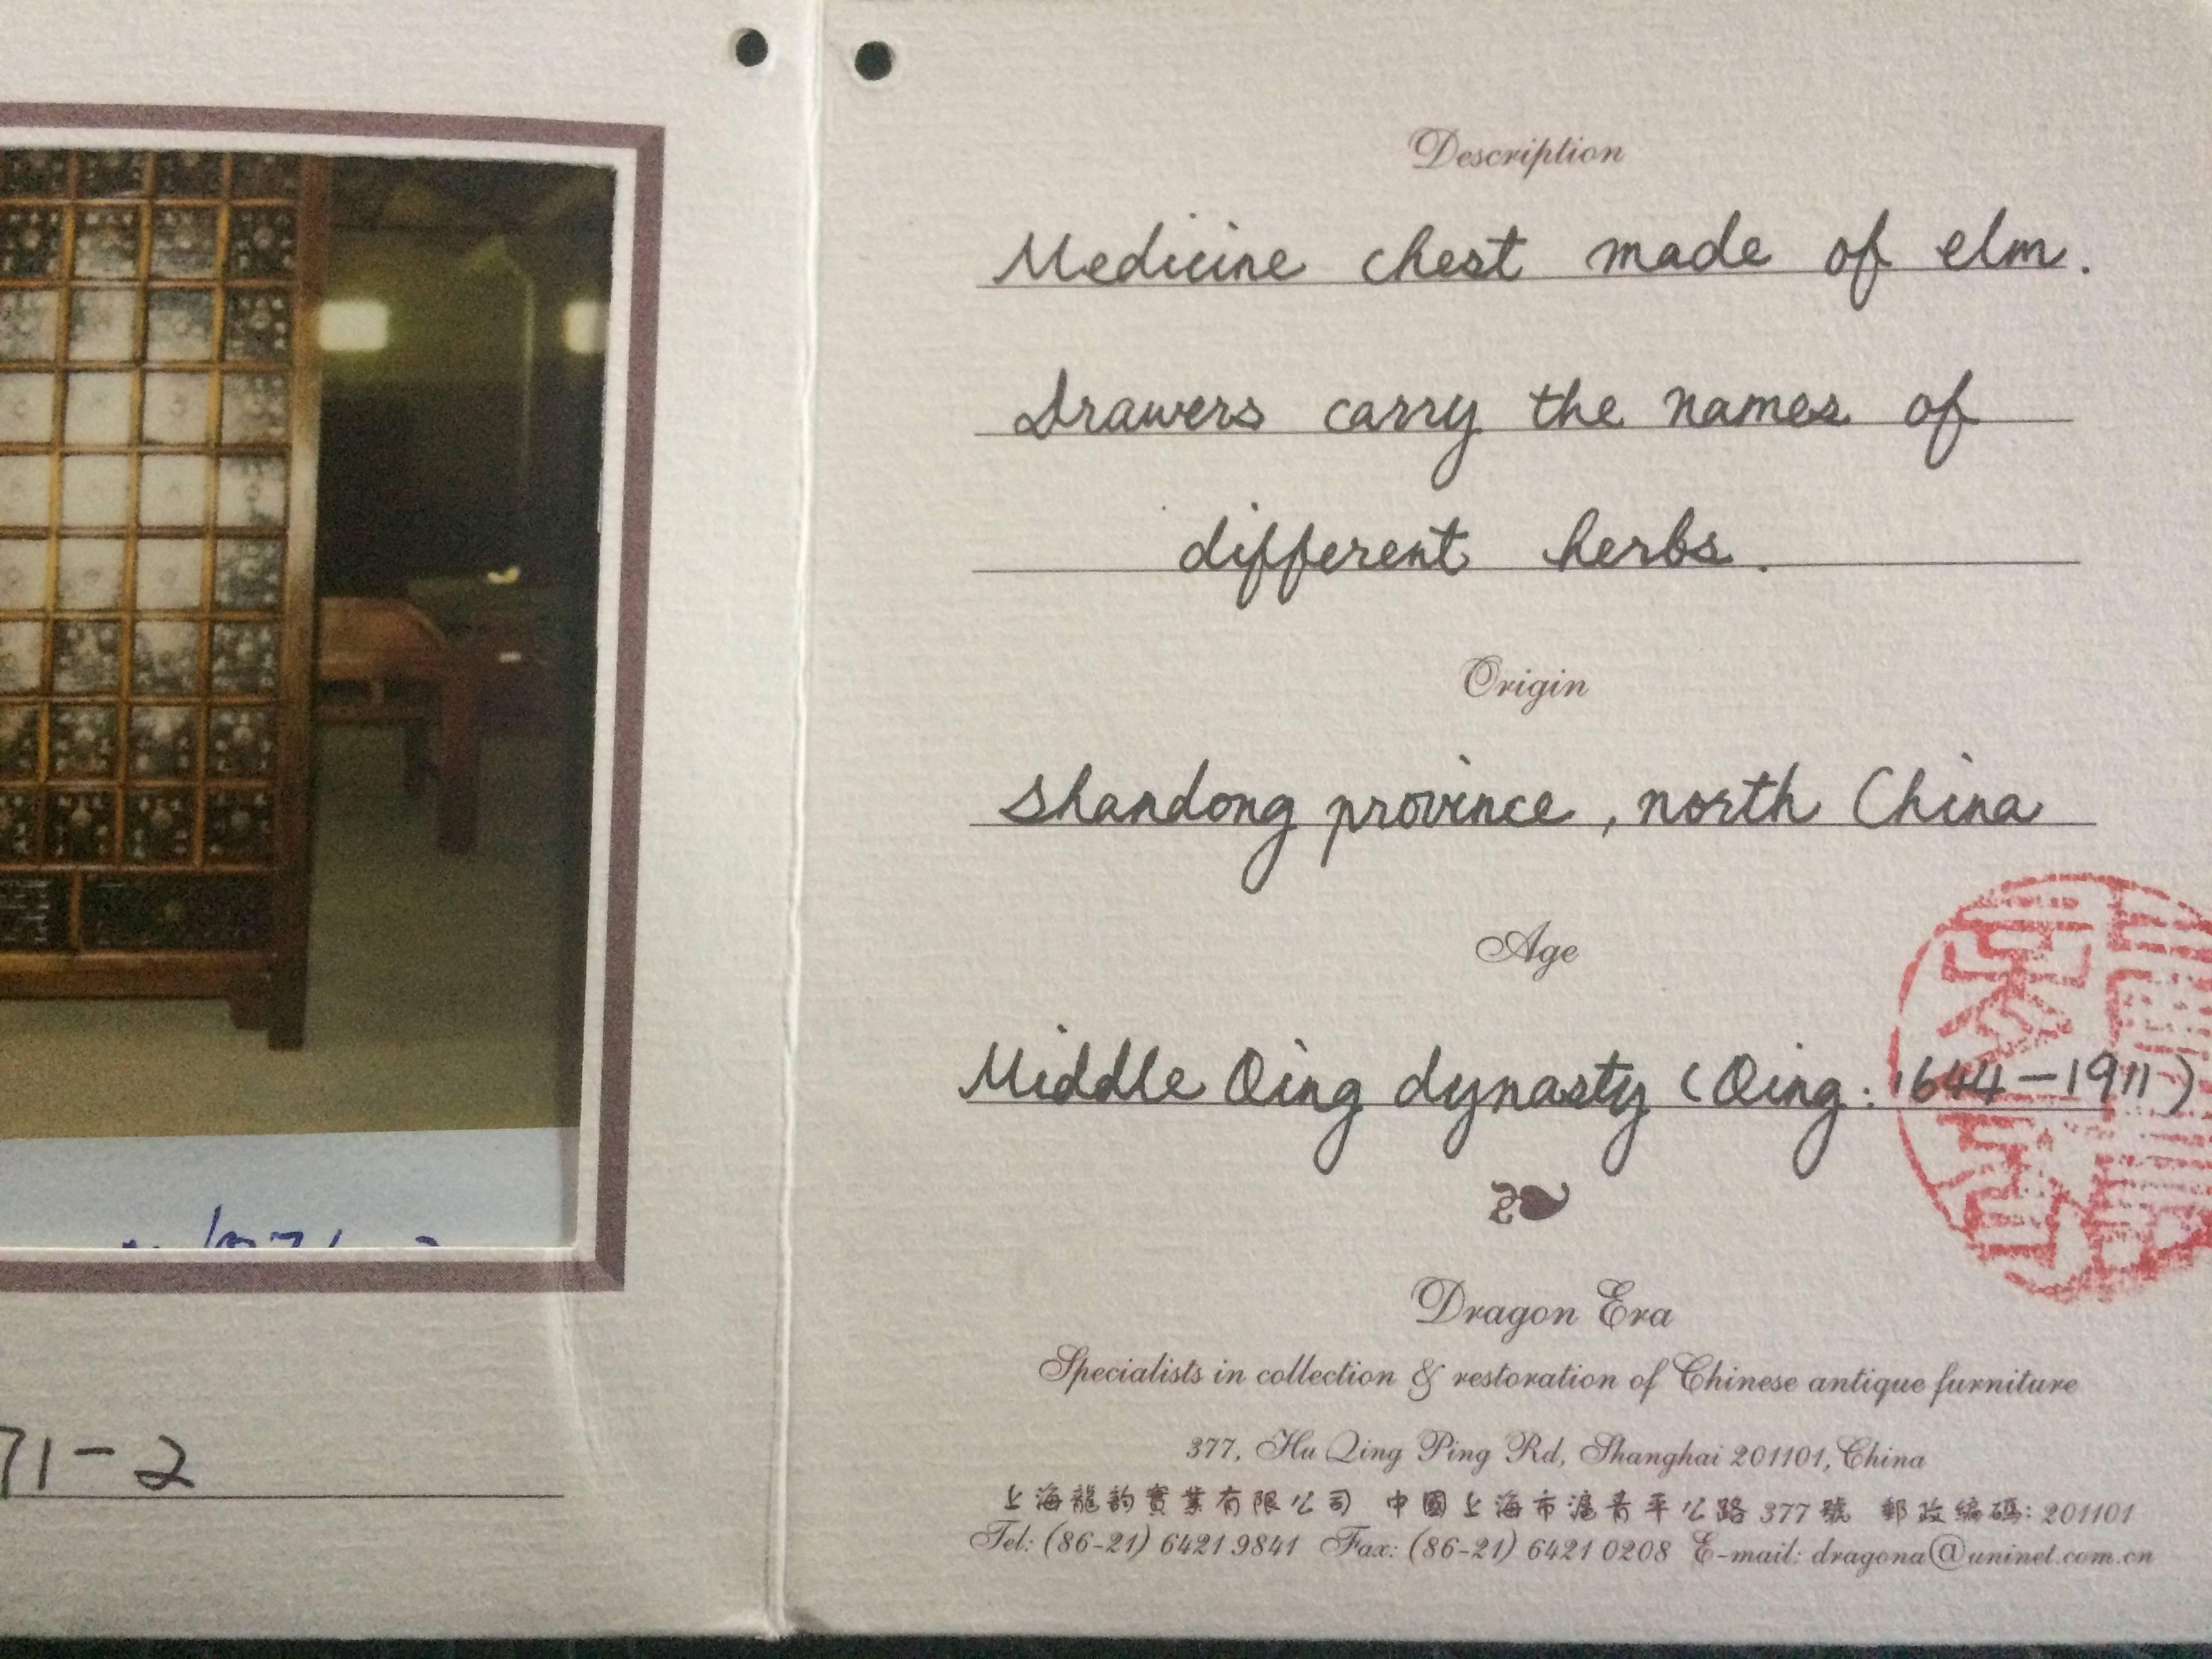 71-2
Description
Medicine chest made of elm.
Drawers carry the names of
different herbs.
Origin
Shandong province, north China
Age
Middle Qing dynasty (Qing: 1644-1911)
Dragon Era
Specialists in collection & restoration of Chinese antique furniture
377, Hu Qing Ping Rd, Shanghai 201101, China
上海龍韵實業有限公司 中國上海市滬青平公路377號 郵政編碼: 201101
Tel: (86-21) 6421 9841 Fax: (86-21) 6421 0208 E-mail: dragona@uninet.com.cn